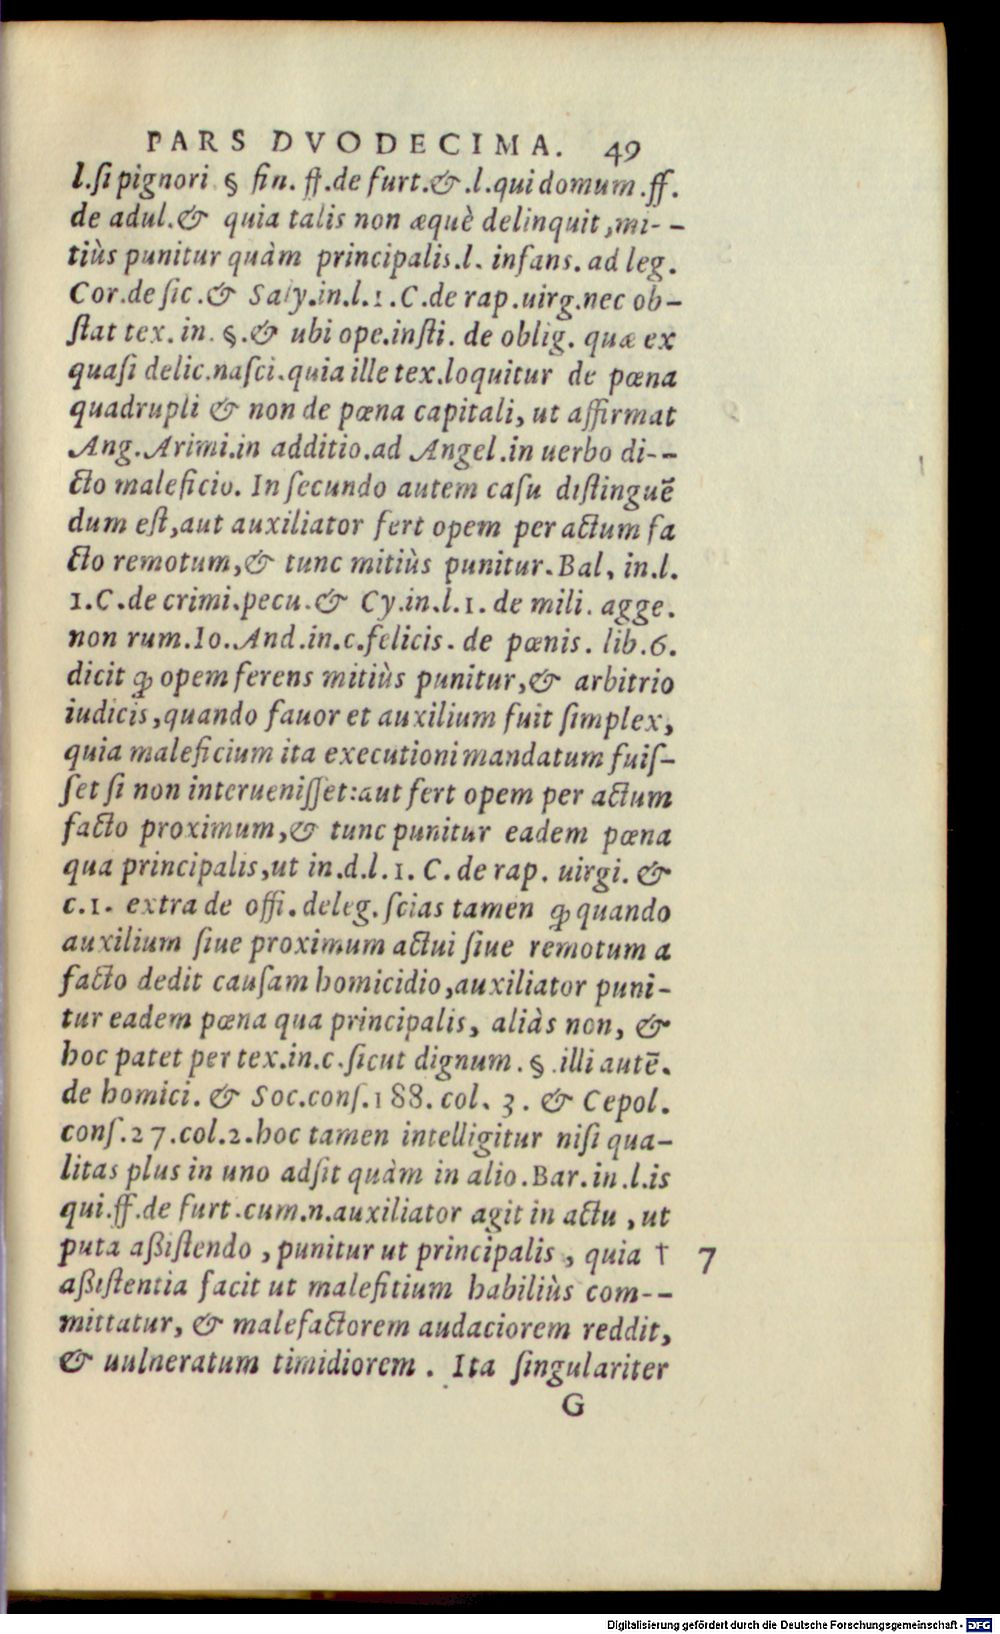 PARS DVODECIMA. 49
l.ſi pignori § fin. ff.de furt.& .l.qui domum .ff.
de adul.& quia talis non æquè delinquit,mi--
tiùs punitur quàm principalis.l. infans. ad leg.
Cor.de ſic.& Saly.in.l.1.C.de rap.uirg.nec ob-
ſtat tex. in. §.& ubi ope.inſti. de oblig. quæ ex
quaſi delic.naſci.quia ille tex.loquitur de pœna
quadrupli & non de pœna capitali, ut affirmat
Ang.Arimi.in additio.ad Angel.in uerbo di--
cto maleficio. In ſecundo autem caſu diſtinguē
dum eſt,aut auxiliator fert opem per actum fa
cto remotum,& tunc mitiùs punitur.Bal, in.l.
1.C.de crimi.pecu.& Cy.in.l.1. de mili. agge.
non rum.Io.And.in.c.felicis. de pœnis. lib.6.
dicit ꝙ opem ferens mitiùs punitur,& arbitrio
iudicis,quando fauor et auxilium fuit ſimplex,
quia maleficium ita executioni mandatum fuiſ-
ſet ſi non interueniſſet:aut fert opem per actum
facto proximum,& tunc punitur eadem pœna
qua principalis,ut in.d.l.1. C. de rap. uirgi. &
c.1. extra de offi.deleg.ſcias tamen ꝙ quando
auxilium ſiue proximum actui ſiue remotum a
facto dedit cauſam homicidio,auxiliator puni-
tur eadem pœna qua principalis, aliàs non, &
hoc patet per tex.in.c.ſicut dignum. § .illi autē.
de homici. & Soc.conſ.188. col. 3. & Cepol.
conſ.27.col.2.hoc tamen intelligitur niſi qua-
litas plus in uno adſit quàm in alio.Bar.in.l.is
qui.ff.de furt.cum.n.auxiliator agit in actu , ut
puta aßiſtendo , punitur ut principalis , quia † 7
aßiſtentia facit ut malefitium habiliùs com--
mittatur, & malefactorem audaciorem reddit,
& uulneratum timidiorem . Ita ſingulariter
G
Digitalisierung gefördert durch die Deutsche Forschungsgemeinschaft - DFG